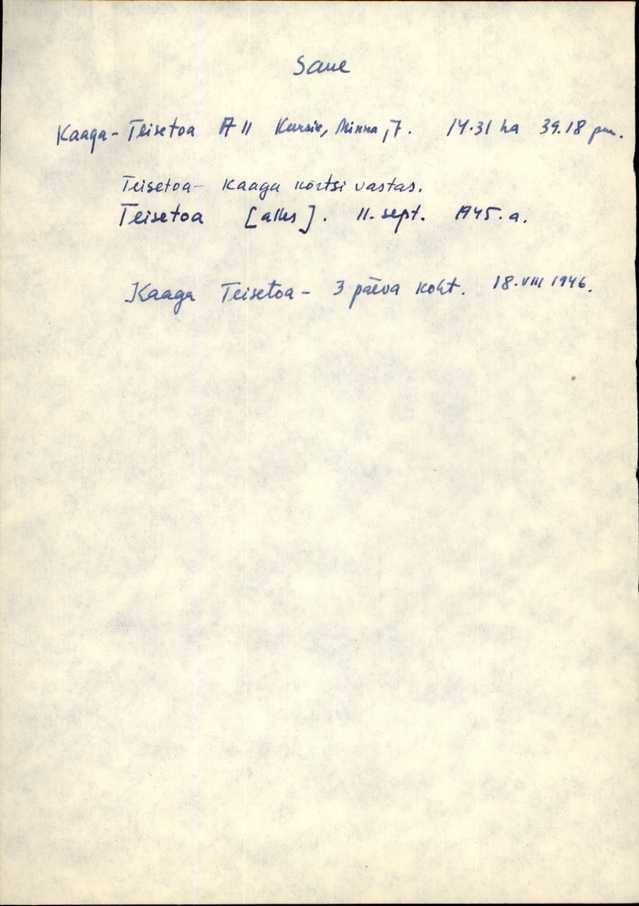 Saue
Kaaga-Teisetoa A 11 Minna, J. 14.31 ha 39.18
Teisetoa - Kaaga kõrtsi vastas.
Teisetoa [alles]. 11. sept. 1945. a.
Kaaga Teisetoa - 3 päeva koht. 18. VIII 1946.